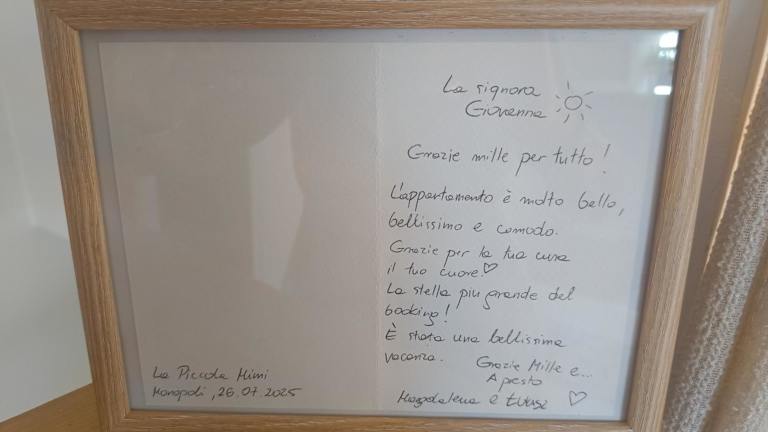 La signora
Giovanna
Grazie mille per tutto!
L'appartamento è molto bello,
bellissimo e comodo.
Grazie per la tua cura
il tuo cuore.♡
La stella più grande del
booking!
È stata una bellissima
vacanza.
Grazie Mille e...
A presto
Magdalena e
La Piccola Mimi
Monopoli, 26.07.2025